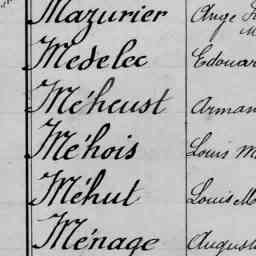 Mazurier Ange
Medelec Edouar
Méheust Arman
Méhois Louis M
Méhut Louis Ma
Ménage August